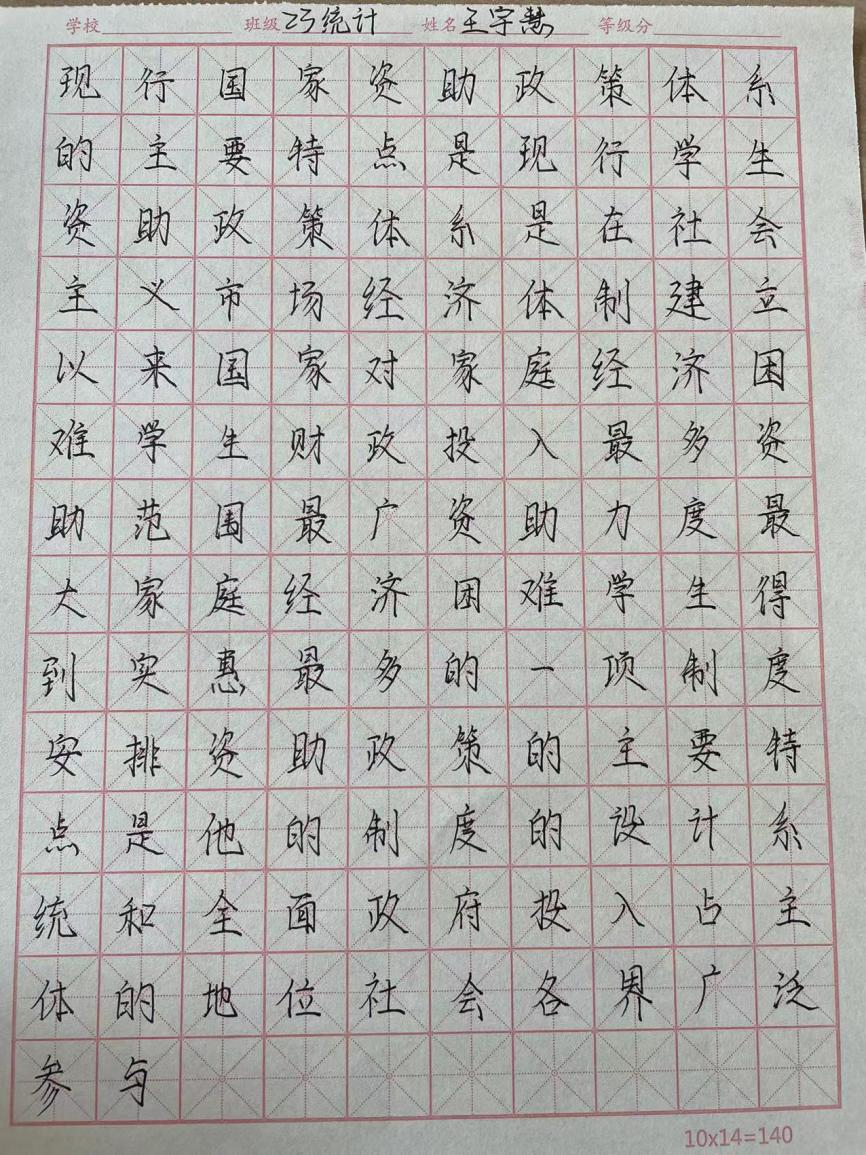 学校 班级 23统计 姓名 王宇慧 等级分
现行国家资助政策体系
的主要特点是现行学生
资助政策体系是在社会
主义市场经济体制建立
以来国家对家庭经济困
难学生财政投入最多资
助范围最广资助力度最
大家庭经济困难学生得
到实惠最多的一项制度
安排资助政策的主要特
点是他的制度的设计系
统和全面政府投入占主
体的地位社会各界广泛
参与
10x14=140